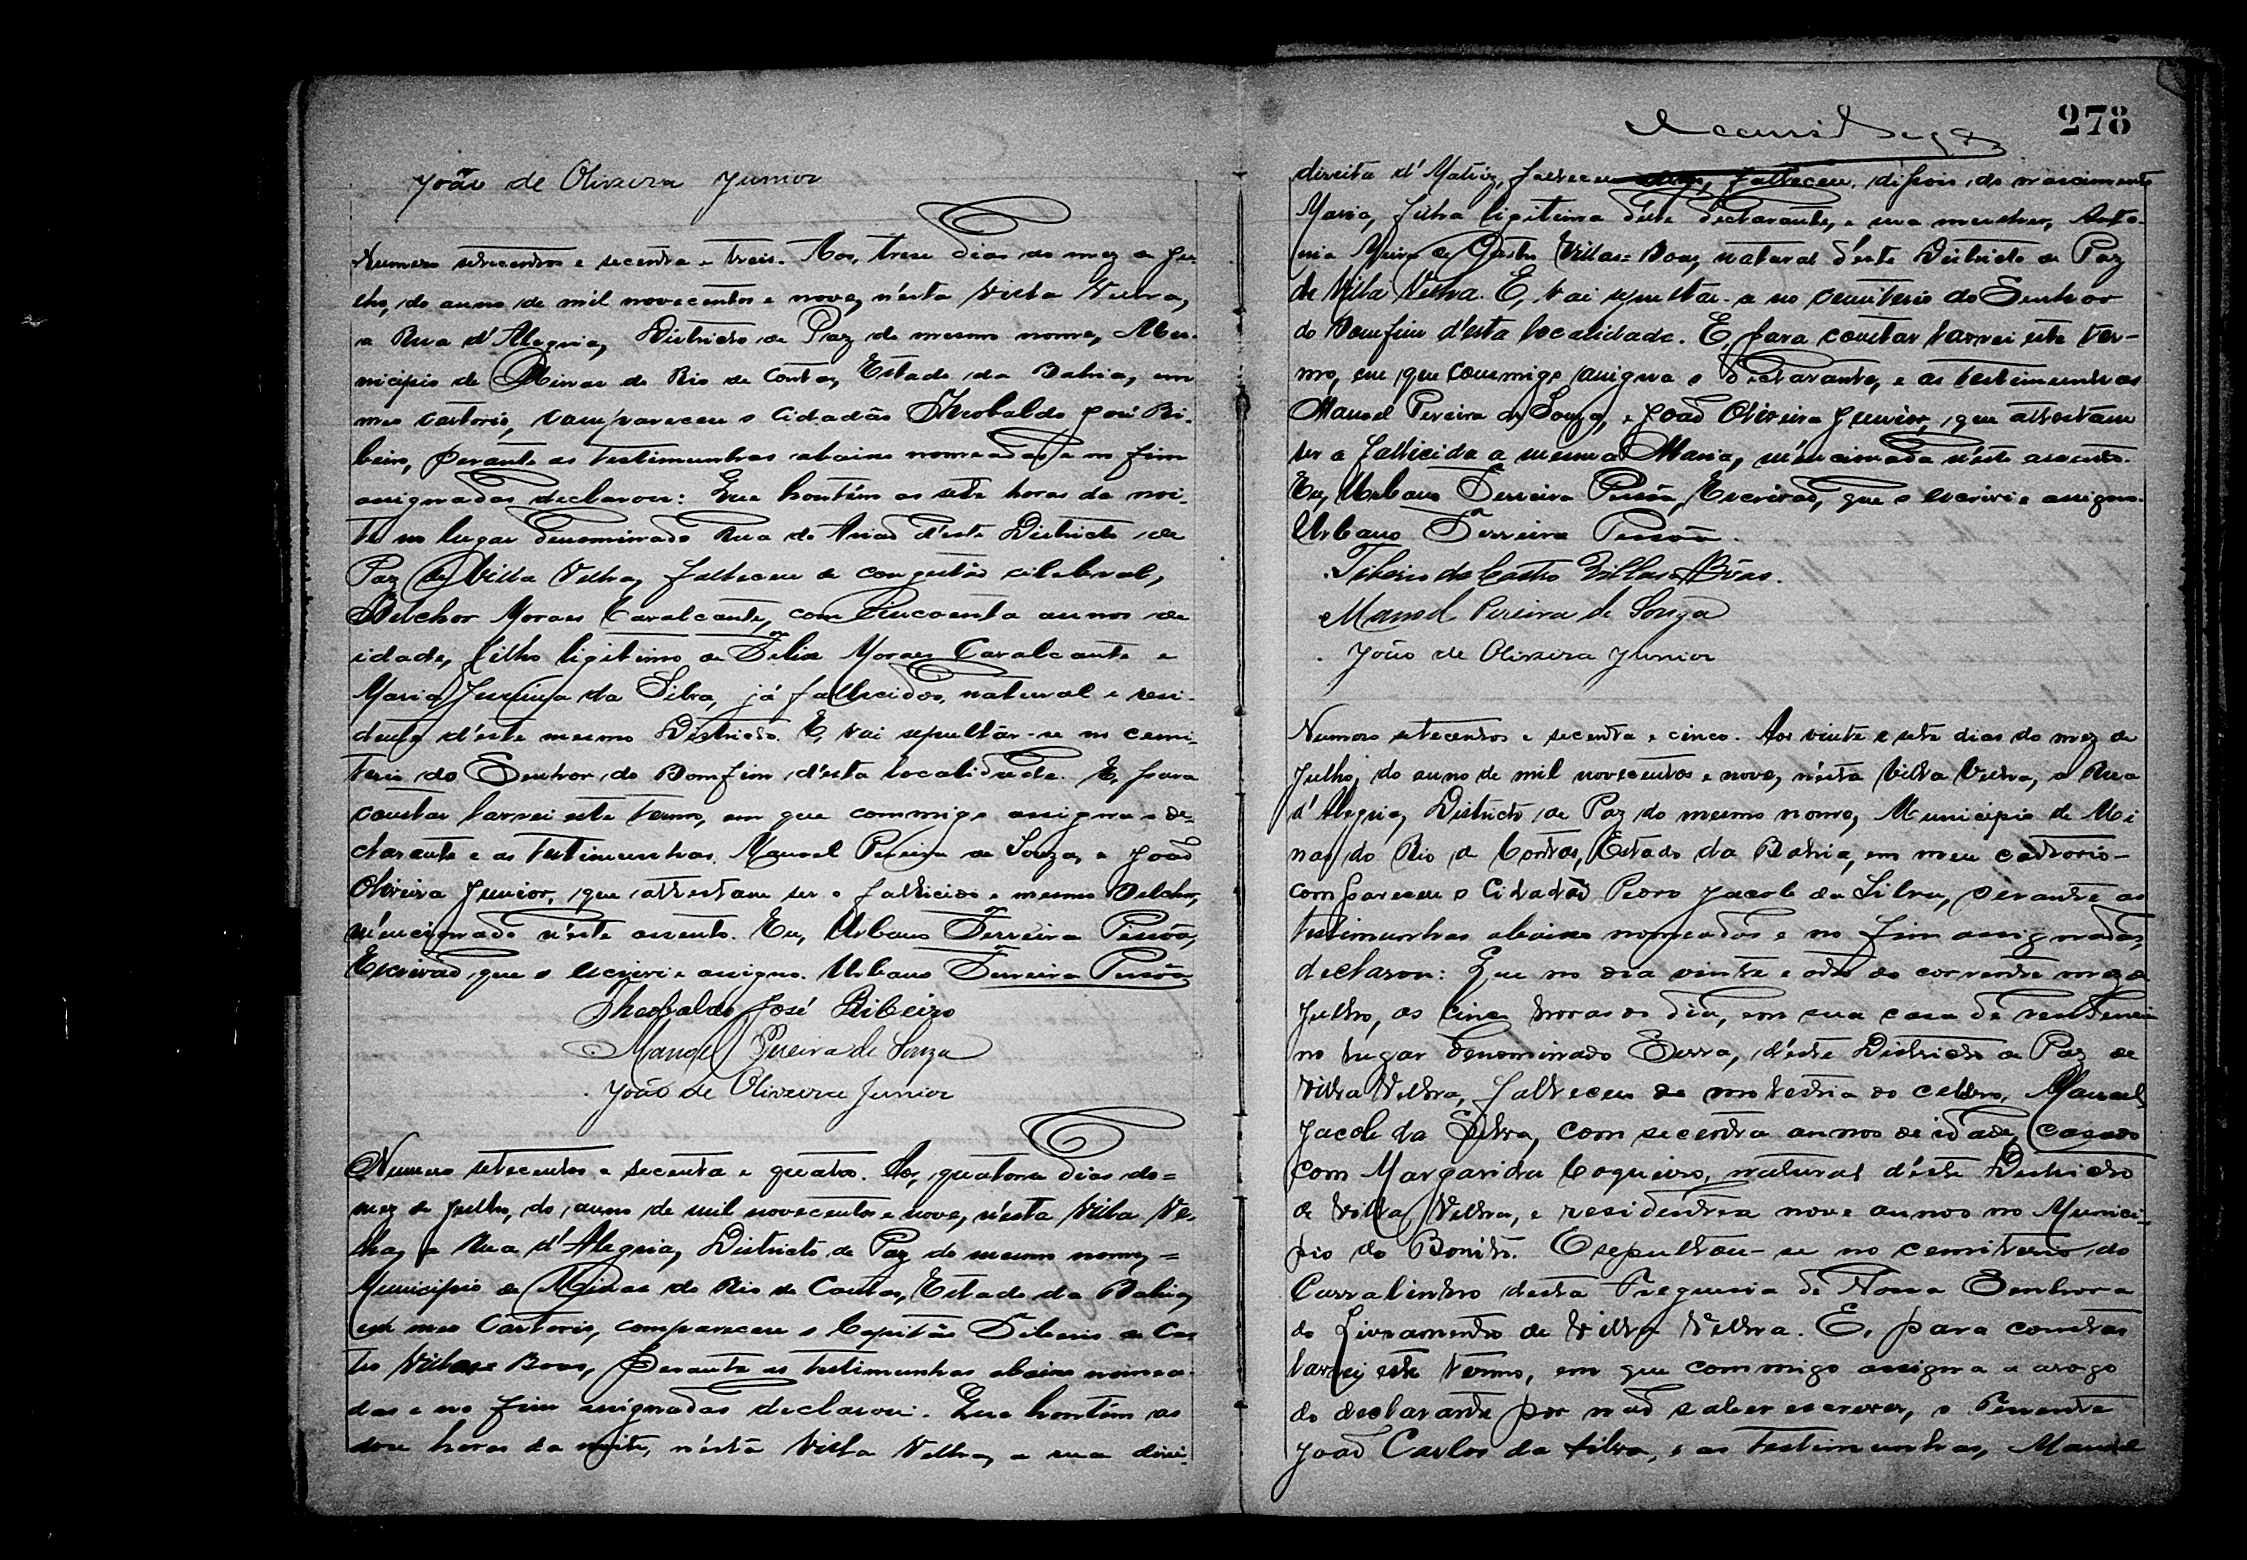 João de Oliveira Junior
Numero setecentos e secenta e treis. Aos, treze dias do mez de Ju-
lho, do anno de mil novecentos e nove, n'ésta Villa Velha,
a Rua d'Alegria, Districto de Paz do mesmo nome, Mu-
nicipio de Minas do Rio de Contas, Estado da Bahia, em
meu cartorio, compareceu o Cidadão Theobaldo José Ri-
beiro, perante as testimunhas abaixo nomeadas e no fim
assignadas declarou: Que hontém as sete horas da noi-
te no lugar denominado Rua do d'este Districto de
Paz de Villa Velha, falleceu de congestão cilebral,
Belchor Moraes Cavalcante, com cincoenta annos de
idade, filho ligitimo de Felix Moraes Cavalcante e
Maria da Silva, já fallicidos, natural e resi-
dente d'este mesmo Districto. E, vai sepultár-se no cemi-
terio do Senhor do Bomfim d'ésta localidade. E, para
constar lavrei este termo, em que commigo assigna o de-
clarante e as testimunhas, Manoel Pereira de Souza, e João
Oliveira Junior, que attestam ser o fallicido o mesmo Belchor,
méncionado n'este assento. Eu, Urbano Ferreira Pessôa,
Escrivão, que o escrivi e assigno. Urbano Ferreira Pessôa
Theobaldo José Ribeiro
Manoel Pereira de Souza
João de Oliveira Junior
Numero setecentos e secenta e quatro. Aos, quatorze dias do=
mez de Julho, do anno de mil novecentos e nove, n'ésta Villa Ve-
lha, a Rua d'Alegria, Districto de Paz do mesmo nome,=
Municipio de Minas do Rio de Contas, Estado da Bahia,
em meu Cartorio, compareceu o Capitão Tiberio de Cas
tro Villas= Boas, perante as testimunhas abaixo nomea-
das e no fim assignadas declarou: Que hontém as
doze horas da noite, n'ésta Villa Velha, a rua direi-
278
direita d'Matriz, falleceu falleceu, dipois do nascimento
Maria, filha ligitima d'este declarante, e sua mulher, Anto-
nia de Castro Villas= Boas, natural d'este Districto de Paz
de Villa Velha. E, vai sepultar-se no cemiterio do Senhor
do Bomfim d'ésta localidade. E, para constar lavrei este ter-
mo, em que commigo assigna o declarante, e as testimunhas
Manoel Pereira de Souza, e João Oliveira Junior, que attestam
ser a fallicida a mesma Maria, méncionada n'éste assento.
Eu, Urbano Ferreira Pessôa, Escrivão, que o escrivi e assigno.
Urbano Ferreira Pessôa.
Tiberio de Castro Villas= Bôas.
Manoel Pereira de Souza
João de Oliveira Junior
Numero setecentos e secenta e cinco. Aos vinte e sete dias do mez de
Julho, do anno de mil novecentos e nove, n'ésta Villa Velha, a Rua
d'Alegria, Districto de Paz do mesmo nome, Municipio de Mi
nas do Rio de Contas, Estado da Bahia, em meu cartorio-
compareceu o Cidadão Pedro Jacob da Silva, perante as
testimunhas abaixo nomeadas e no fim assignadas,
declarou: Que no dia vinte e do corrente mez de
Julho, as cinco horas do dia, em sua casa de residencia
no lugar denominado Serra, d'éste Districto de Paz de
Villa Velha, falleceu de molestia do Manoel
Jacob da Silva, com secenta annos de idade, casado
com Margarida Coqueiro, natural d'éste Districto
de Villa Velha, e residente nove annos no Munici-
pio do Bonito. E sepultou-se no cemiterio do
Curralinho desta Freguesia de Nossa Senhora
do Livramento de Villa Velha. E, para constar
lavrei este termo, em que commigo assigna a arogo
do declarante por não saber escrever, o Tenente
João Carlos da Silva, e as testimunhas, Manoel